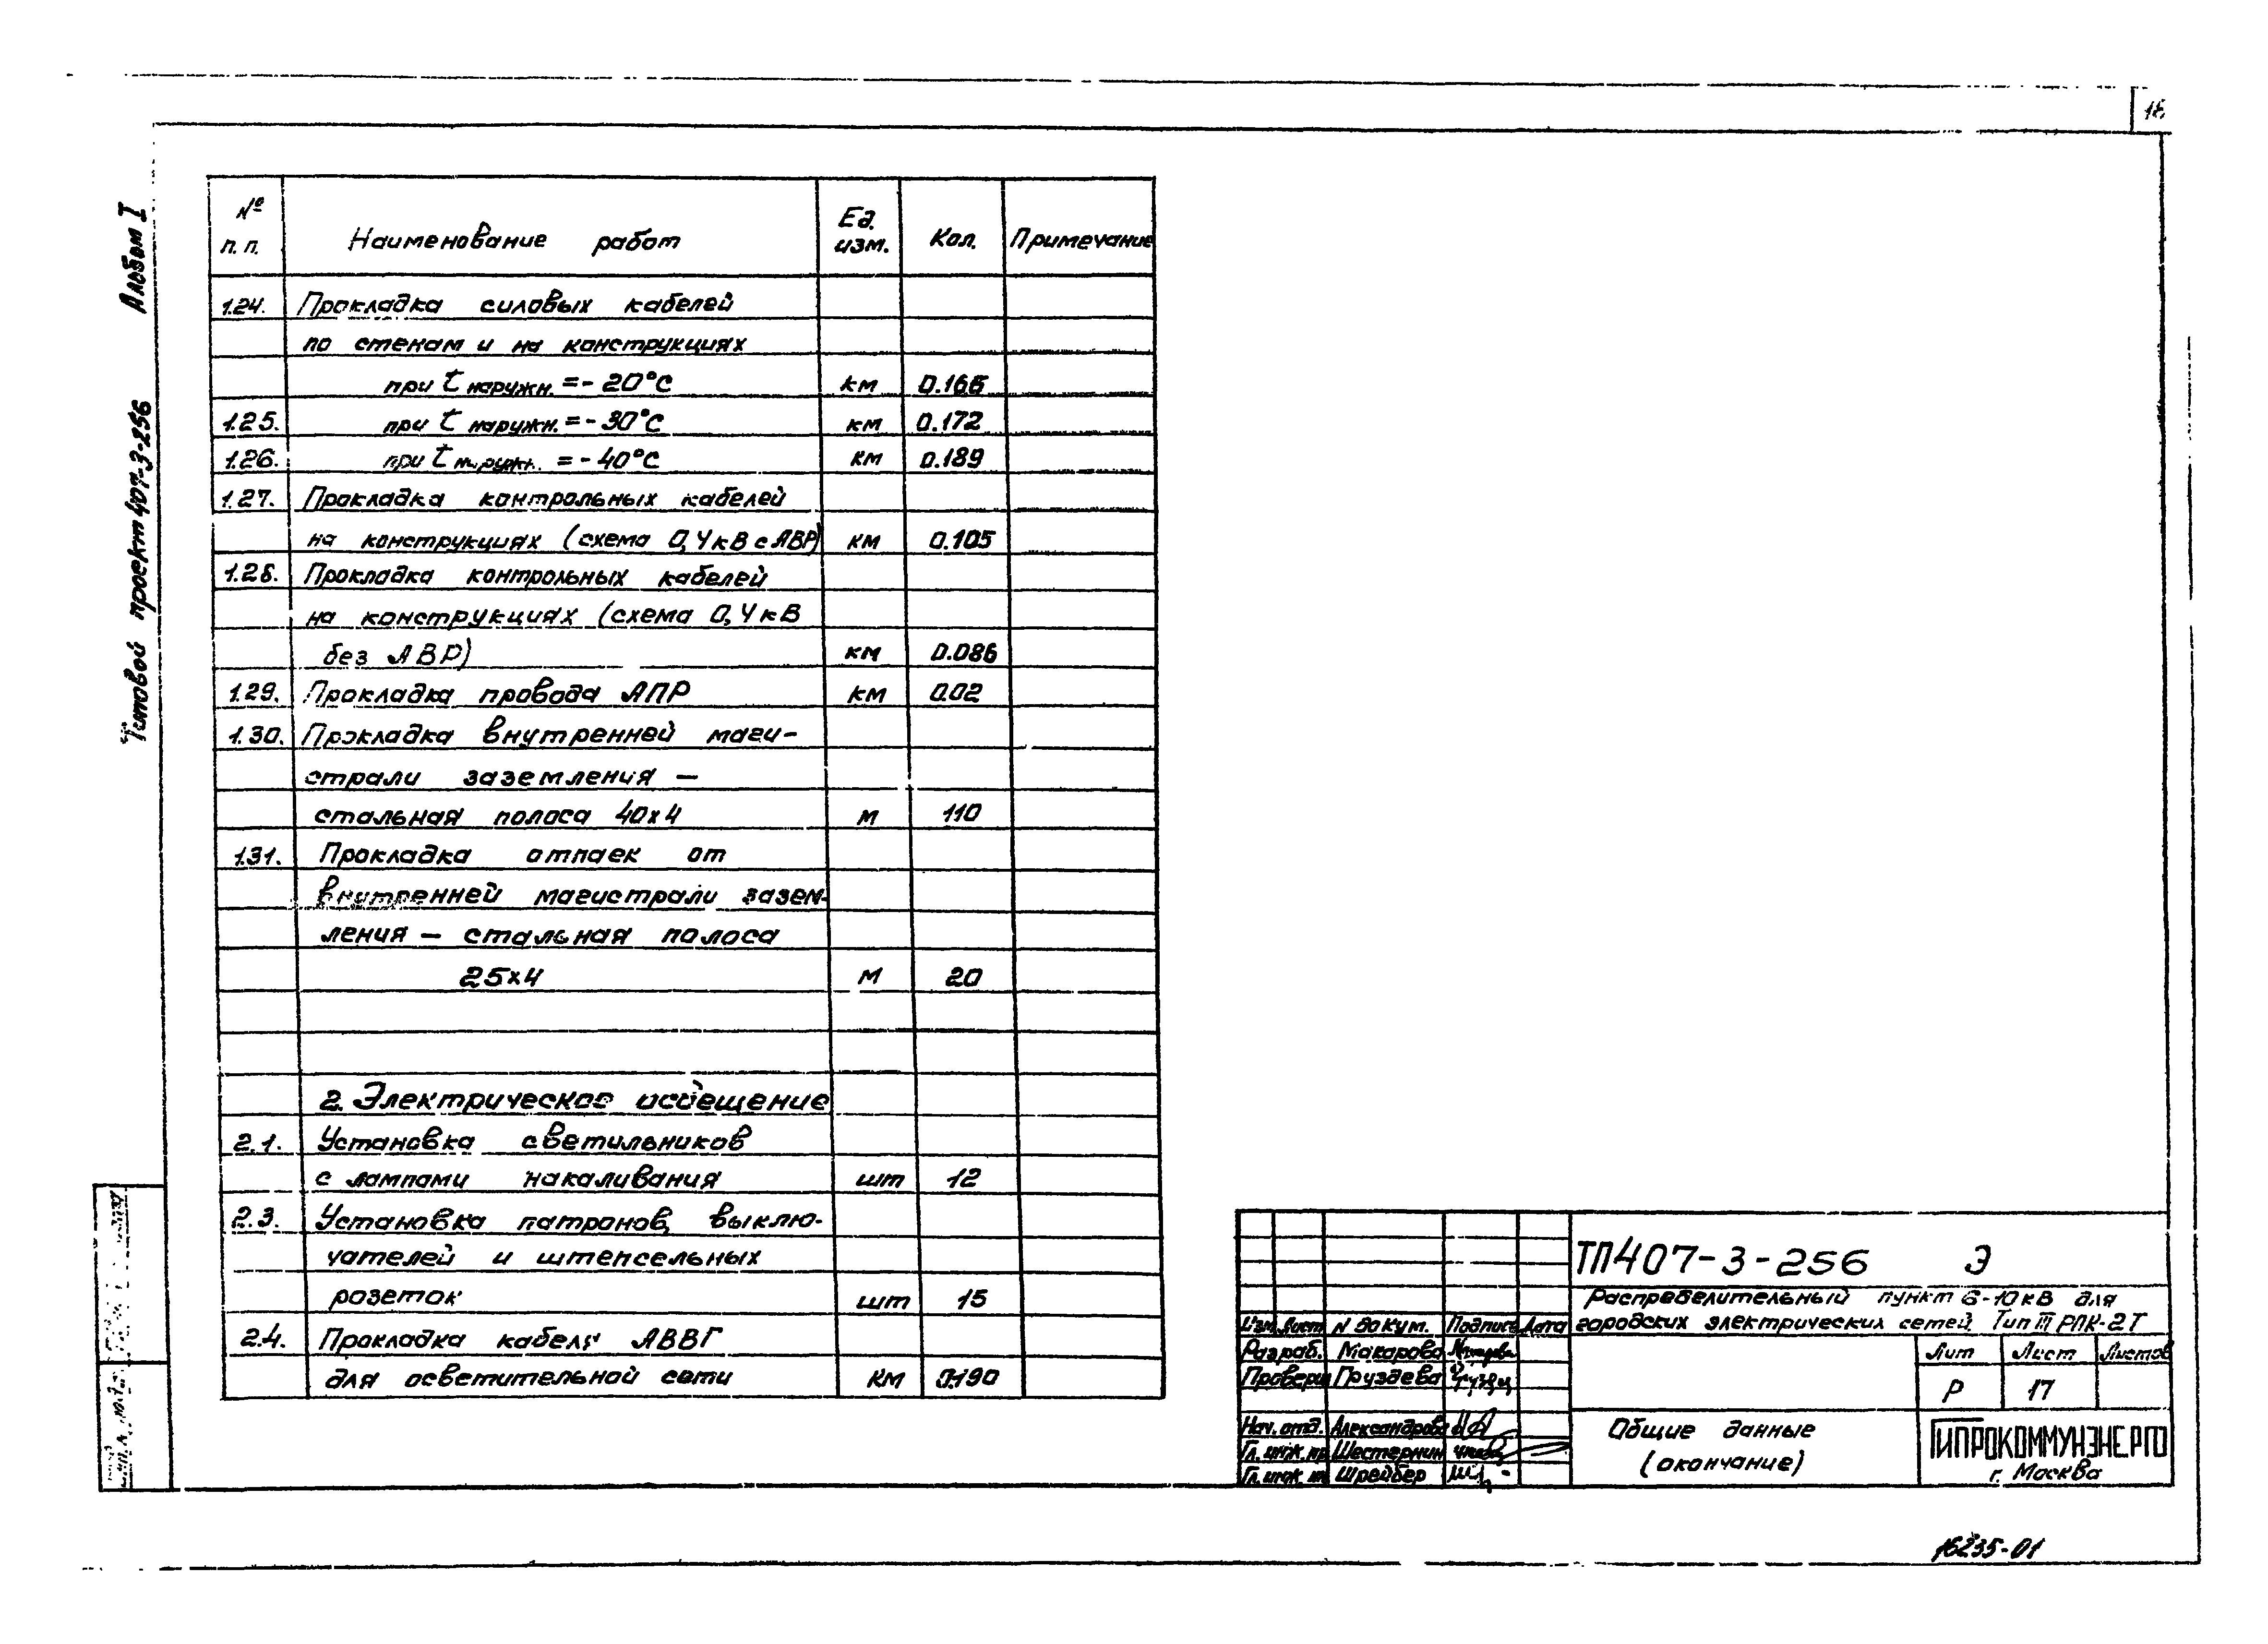 18
Альбом I
Типовой проект 407-3-256
№ п.п. Наименование работ Ед. изм. Кол. Примечание
1.24. Прокладка силовых кабелей
по стенам и на конструкциях
при t наружн. = - 20°С км 0.166
1.25. при t наружн. = - 30°С км 0.172
1.26. при t наружн. = - 40°С км 0.189
1.27. Прокладка контрольных кабелей
на конструкциях (схема 0,4кВ с АВР) км 0.105
1.28. Прокладка контрольных кабелей
на конструкциях (схема 0,4кВ
без АВР) км 0.086
1.29. Прокладка провода АПР км 0.02
1.30. Прокладка внутренней маги-
страли заземления —
стальная полоса 40х4 м 110
1.31. Прокладка отпаек от
внутренней магистрали зазем-
ления — стальная полоса
25х4 м 20
2. Электрическое освещение
2.1. Установка светильников
с лампами накаливания шт 12
2.3. Установка патронов, выклю-
чателей и штепсельных
розеток шт 15
2.4. Прокладка кабеля АВВГ
для осветительной сети км 0.190
ТП407-3-256 Э
Распределительный пункт 6-10кВ для
городских электрических сетей Тип III РПК-2Т
Изм. Лист N докум. Подпись Дата
Разраб. Макарова
Провери Груздева
Нач. отд. Александрова
Гл. инж. пр Шестернин
Гл. инж. Шрейбер
Лит Лист Листов
Р 17
Общие данные
(окончание)
ГИПРОКОММУНЭНЕРГО
г. Москва
16235-01